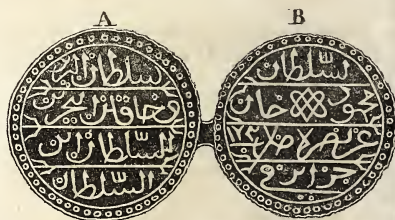 A
سلطان البرين
وخاقان البحرين
السلطان ابن
السلطان
B
السلطان
محمود خان
عز نصره ضرب
جزاير في